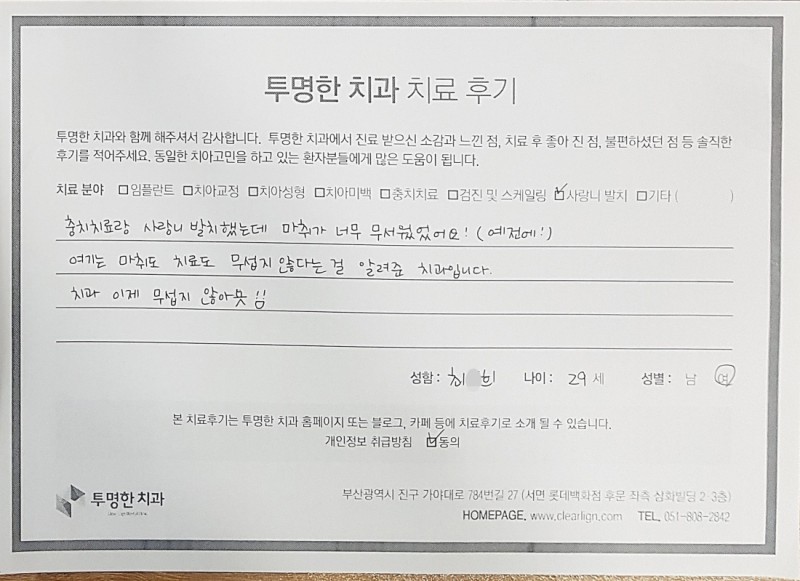 투명한 치과 치료 후기
투명한 치과와 함께 해주셔서 감사합니다. 투명한 치과에서 진료 받으신 소감과 느낀 점, 치료 후 좋아 진 점, 불편하셨던 점 등 솔직한
후기를 적어주세요. 동일한 치아고민을 하고 있는 환자분들에게 많은 도움이 됩니다.
치료 분야 □임플란트 □치아교정 □치아성형 □치아미백 □충치치료 □검진 및 스케일링 ☑사랑니 발치 □기타 ( )
충치치료랑 사랑니 발치했는데 마취가 너무 무서웠었어요! (예전에!)
여기는 마취도 치료도 무섭지 않다는 걸 알려준 치과입니다.
치과 이제 무섭지 않아욧 !!
성함 : 최 희 나이 : 29 세 성별 : 남 여
본 치료후기는 투명한 치과 홈페이지 또는 블로그, 카페 등에 치료후기로 소개 될 수 있습니다.
개인정보 취급방침 ☑동의
투명한 치과
부산광역시 진구 가야대로 784번길 27 (서면 롯데백화점 후문 좌측 삼화빌딩 2·3층)
HOMEPAGE. www.clearlign.com TEL. 051-808-2842